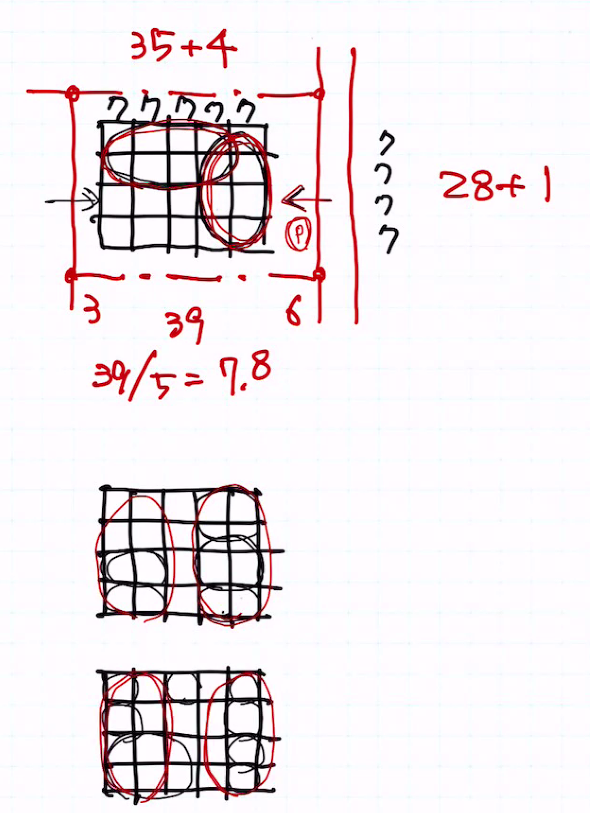 35+4
7 7 7 7 7
7
7
7
7
28+1
P
3 39 6
39/5 = 7.8